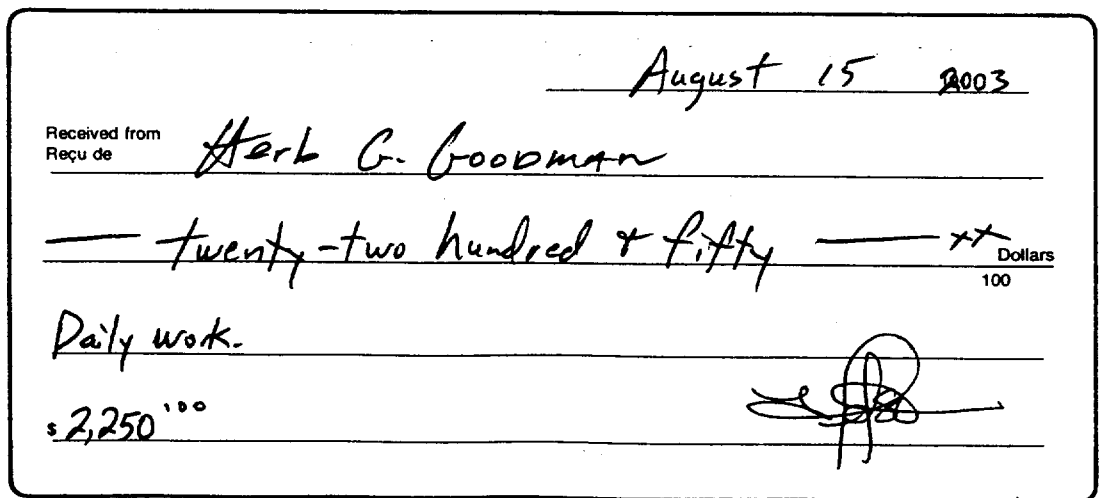 August 15 2003
Received from
Reçu de Herb G. Goodman
— twenty-two hundred & fifty — xx Dollars
100
Daily work.
$ 2,250.00